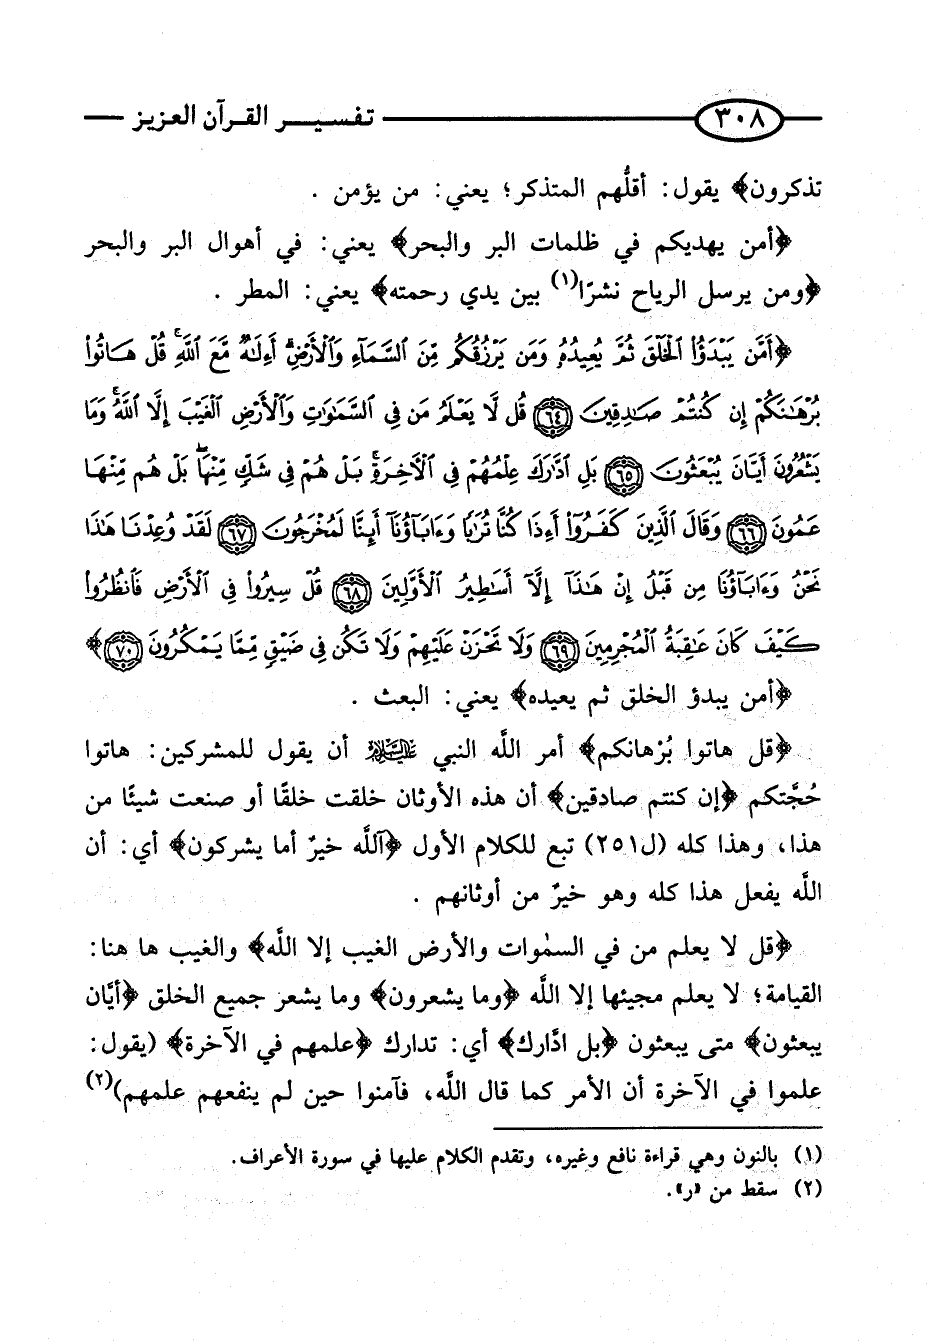 ٣٠٨ تفسير القرآن العزيز
تذكرون﴾ يقول: أقلُّهم المتذكر؛ يعني: من يؤمن .
﴿أمن يهديكم في ظلمات البر والبحر﴾ يعني: في أهوال البر والبحر
﴿ومن يرسل الرياح نشرًا(١) بين يدي رحمته﴾ يعني: المطر .
﴿أَمَّن يَبْدَؤُا۟ ٱلْخَلْقَ ثُمَّ يُعِيدُهُۥ وَمَن يَرْزُقُكُم مِّنَ ٱلسَّمَآءِ وَٱلْأَرْضِ ۗ أَءِلَـٰهٌ مَّعَ ٱللَّهِ ۚ قُلْ هَاتُوا۟
بُرْهَـٰنَكُمْ إِن كُنتُمْ صَـٰدِقِينَ ٦٤ قُل لَّا يَعْلَمُ مَن فِى ٱلسَّمَـٰوَٰتِ وَٱلْأَرْضِ ٱلْغَيْبَ إِلَّا ٱللَّهُ ۚ وَمَا
يَشْعُرُونَ أَيَّانَ يُبْعَثُونَ ٦٥ بَلِ ٱدَّٰرَكَ عِلْمُهُمْ فِى ٱلْـَٔاخِرَةِ ۚ بَلْ هُمْ فِى شَكٍّ مِّنْهَا ۖ بَلْ هُم مِّنْهَا
عَمُونَ ٦٦ وَقَالَ ٱلَّذِينَ كَفَرُوٓا۟ أَءِذَا كُنَّا تُرَٰبًا وَءَابَآؤُنَآ أَئِنَّا لَمُخْرَجُونَ ٦٧ لَقَدْ وُعِدْنَا هَـٰذَا
نَحْنُ وَءَابَآؤُنَا مِن قَبْلُ إِنْ هَـٰذَآ إِلَّآ أَسَـٰطِيرُ ٱلْأَوَّلِينَ ٦٨ قُلْ سِيرُوا۟ فِى ٱلْأَرْضِ فَٱنظُرُوا۟
كَيْفَ كَانَ عَـٰقِبَةُ ٱلْمُجْرِمِينَ ٦٩ وَلَا تَحْزَنْ عَلَيْهِمْ وَلَا تَكُن فِى ضَيْقٍ مِّمَّا يَمْكُرُونَ ٧٠﴾
﴿أمن يبدؤ الخلق ثم يعيده﴾ يعني: البعث .
﴿قل هاتوا بُرْهانكم﴾ أمر اللَّه النبي عليه السلام أن يقول للمشركين: هاتوا
حُجَّتكم ﴿إن كنتم صادقين﴾ أن هذه الأوثان خلقت خلقًا أو صنعت شيئًا من
هذا، وهذا كله (ل٢٥١) تبع للكلام الأول ﴿آللَّه خيرٌ أما يشركون﴾ أي: أن
اللَّه يفعل هذا كله وهو خيرٌ من أوثانهم .
﴿قل لا يعلم من في السمٰوات والأرض الغيب إلا اللَّه﴾ والغيب ها هنا:
القيامة؛ لا يعلم مجيئها إلا اللَّه ﴿وما يشعرون﴾ وما يشعر جميع الخلق ﴿أيَّان
يبعثون﴾ متى يبعثون ﴿بل ادَّارك﴾ أي: تدارك ﴿علمهم في الآخرة﴾ (يقول:
علموا في الآخرة أن الأمر كما قال اللَّه، فآمنوا حين لم ينفعهم علمهم)(٢)
(١) بالنون وهي قراءة نافع وغيره، وتقدم الكلام عليها في سورة الأعراف.
(٢) سقط من «ر».